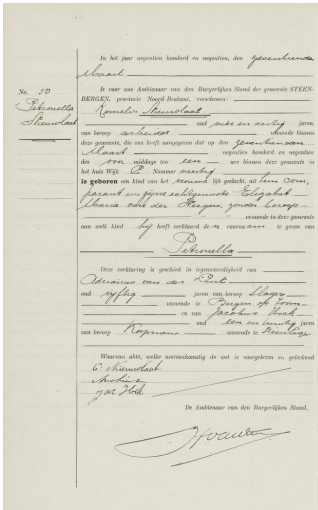 No. 50
Petronella
Nieuwlaat
In het jaar negentien honderd en negentien, den zeventienden
Maart
voor ons Ambtenaar van den Burgerlijken Stand der gemeente STEEN-
BERGEN, provincie Noord-Brabant, verschenen:
Kornelis Nieuwlaat
oud zes en dertig jaren,
van beroep arbeider wonende binnen
deze gemeente, die ons heeft aangegeven dat op den zeventienden
Maart negentien honderd en negentien
des voor middags ten een ure binnen deze gemeente in
het huis Wijk Nommer veertig
is geboren een kind van het vrouwelijk geslacht, uit hem com-
parant en zijne echtgenoote Elizabet
Maria van der zonder beroep
wonende in deze gemeente
aan welk kind hij heeft verklaard de voornaam te geven van
Petronella
Deze verklaring is geschied in tegenwoordigheid van
Adrianus van der
oud vijftig jaren van beroep Slager
wonende te Bergen op Zoom
en van Jacobus Hok
oud een en twintig jaren
van beroep Koopman wonende te Steenbergen
Waarvan akte, welke overeenkomstig de wet is voorgelezen en geteekend
C. Nieuwlaat
Jac Hok
De Ambtenaar van den Burgerlijken Stand,